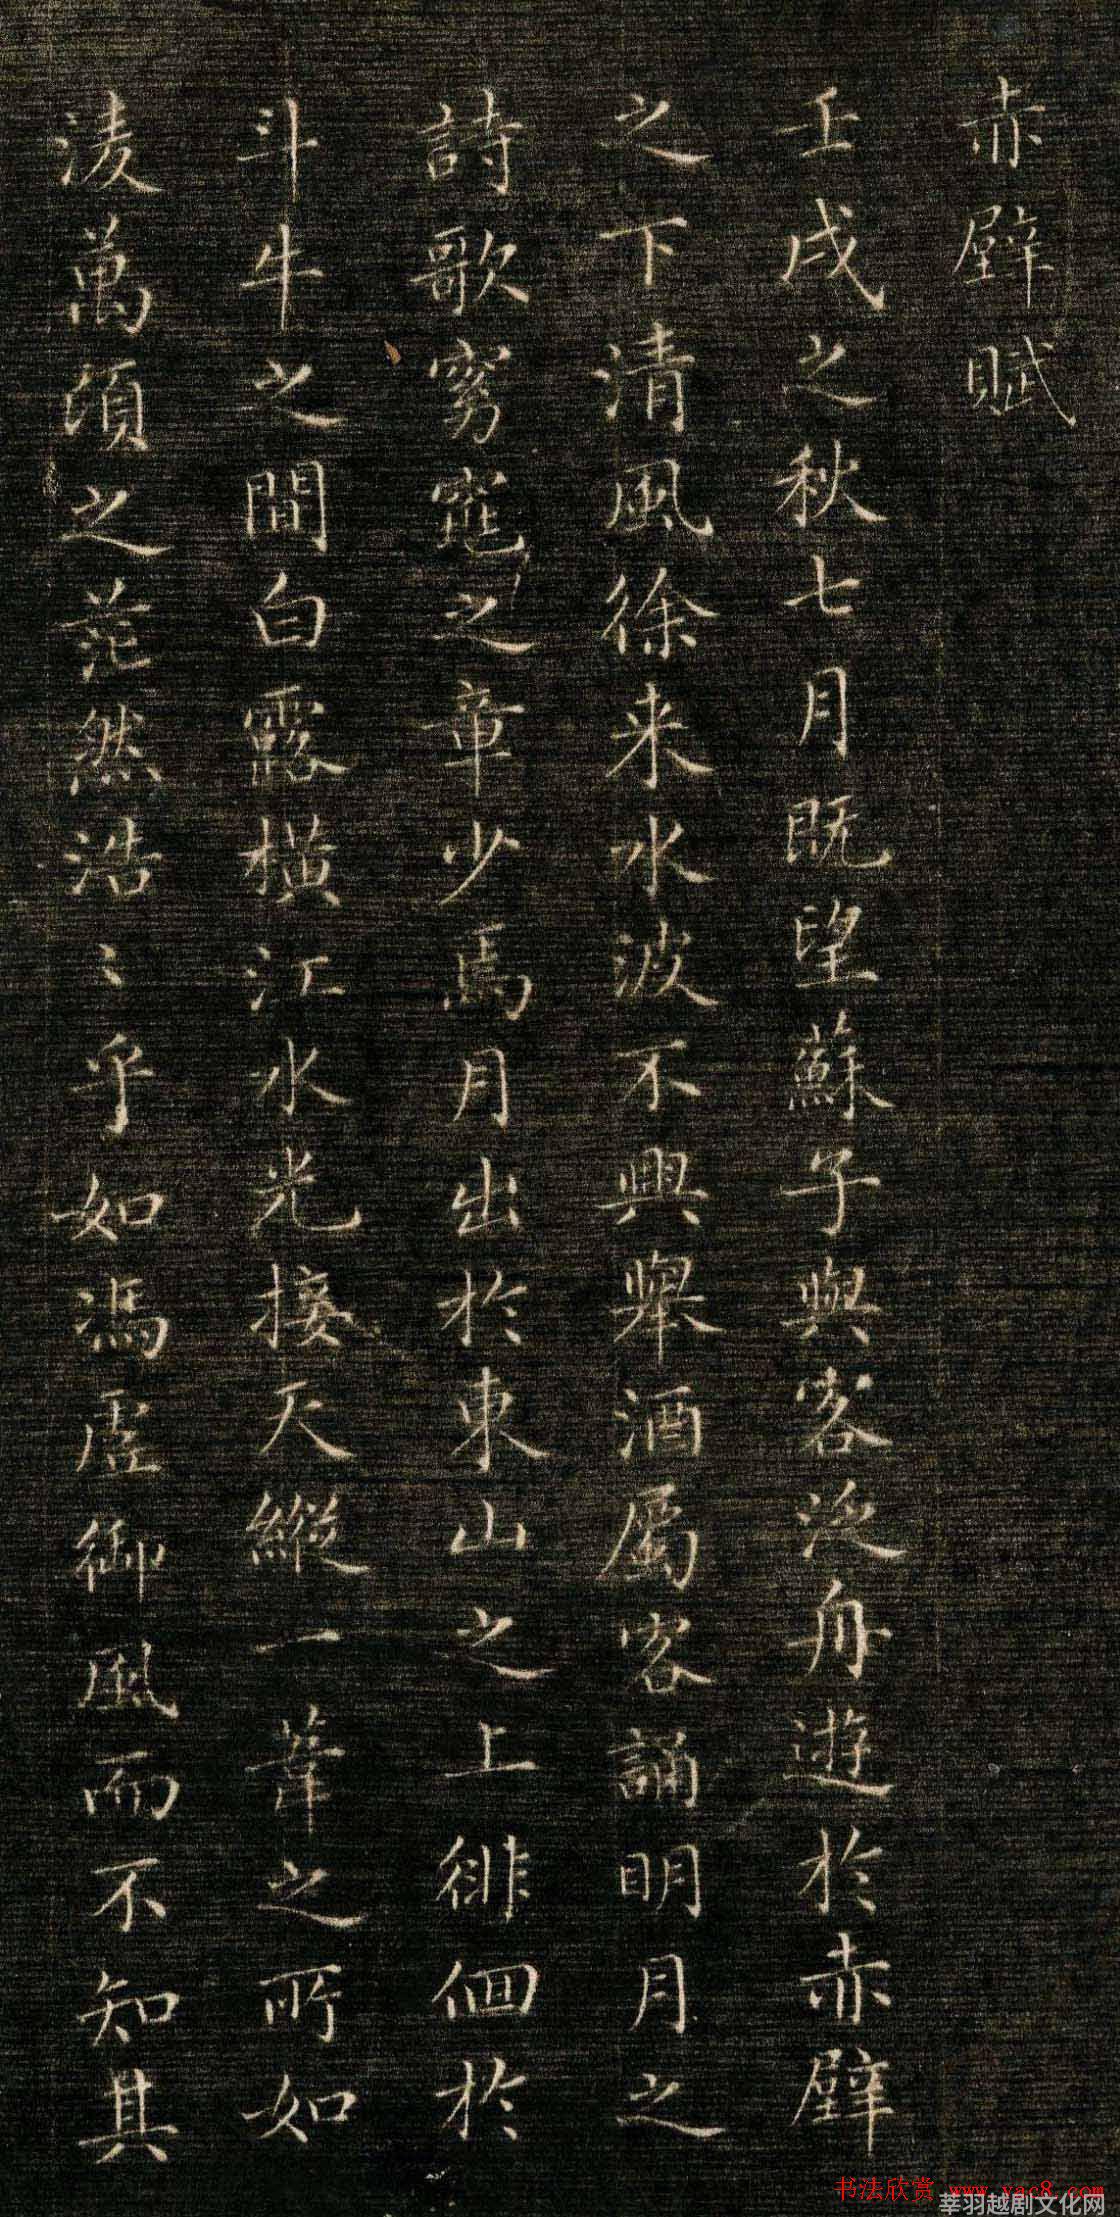 赤壁賦
壬戌之秋七月既望蘇子與客泛舟遊於赤壁
之下清風徐来水波不興舉酒屬客誦明月之
詩歌窈窕之章少焉月出於東山之上徘佪於
斗牛之間白露橫江水光接天縱一葦之所如
淩萬頃之茫然浩〻乎如馮虛御風而不知其
书法欣赏 www.yac8.com
莘羽越剧文化网